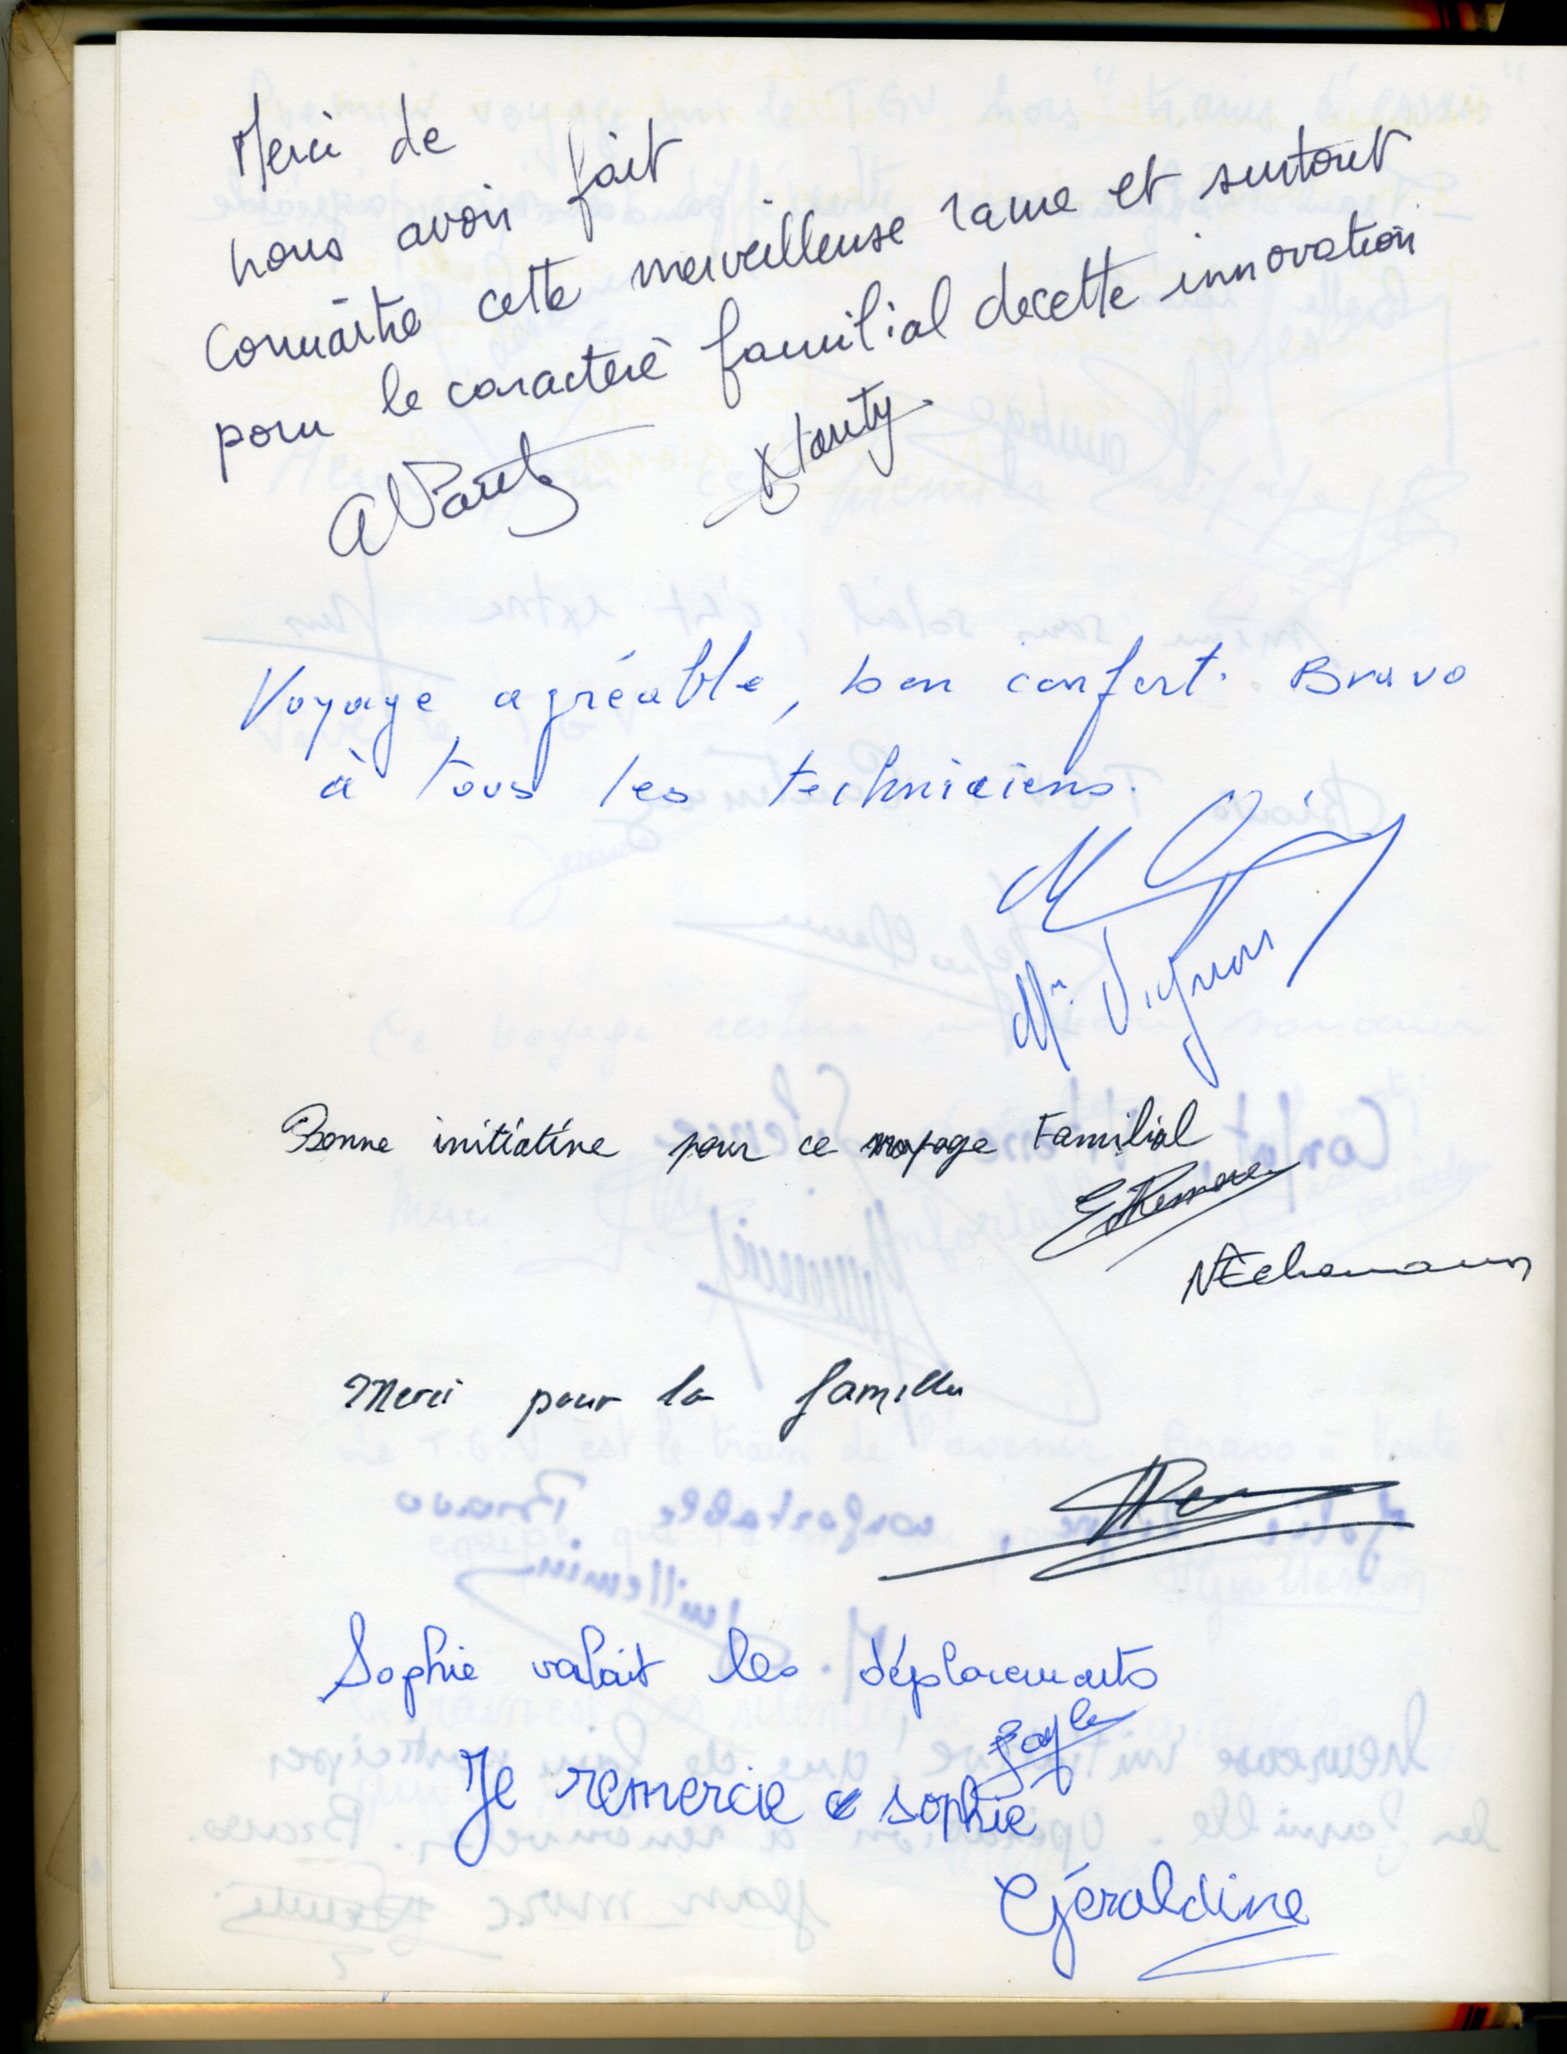 Merci de
nous avoir fait
connaître cette merveilleuse rame et surtout
pour le caractère familial de cette innovation
Voyage agréable, bon confort. Bravo
à tous les techniciens.
Mr Vignon
Bonne initiative pour ce voyage Familial
Merci pour la famille
Sophie valait les déplacements
Je remercie sophie
Géraldine